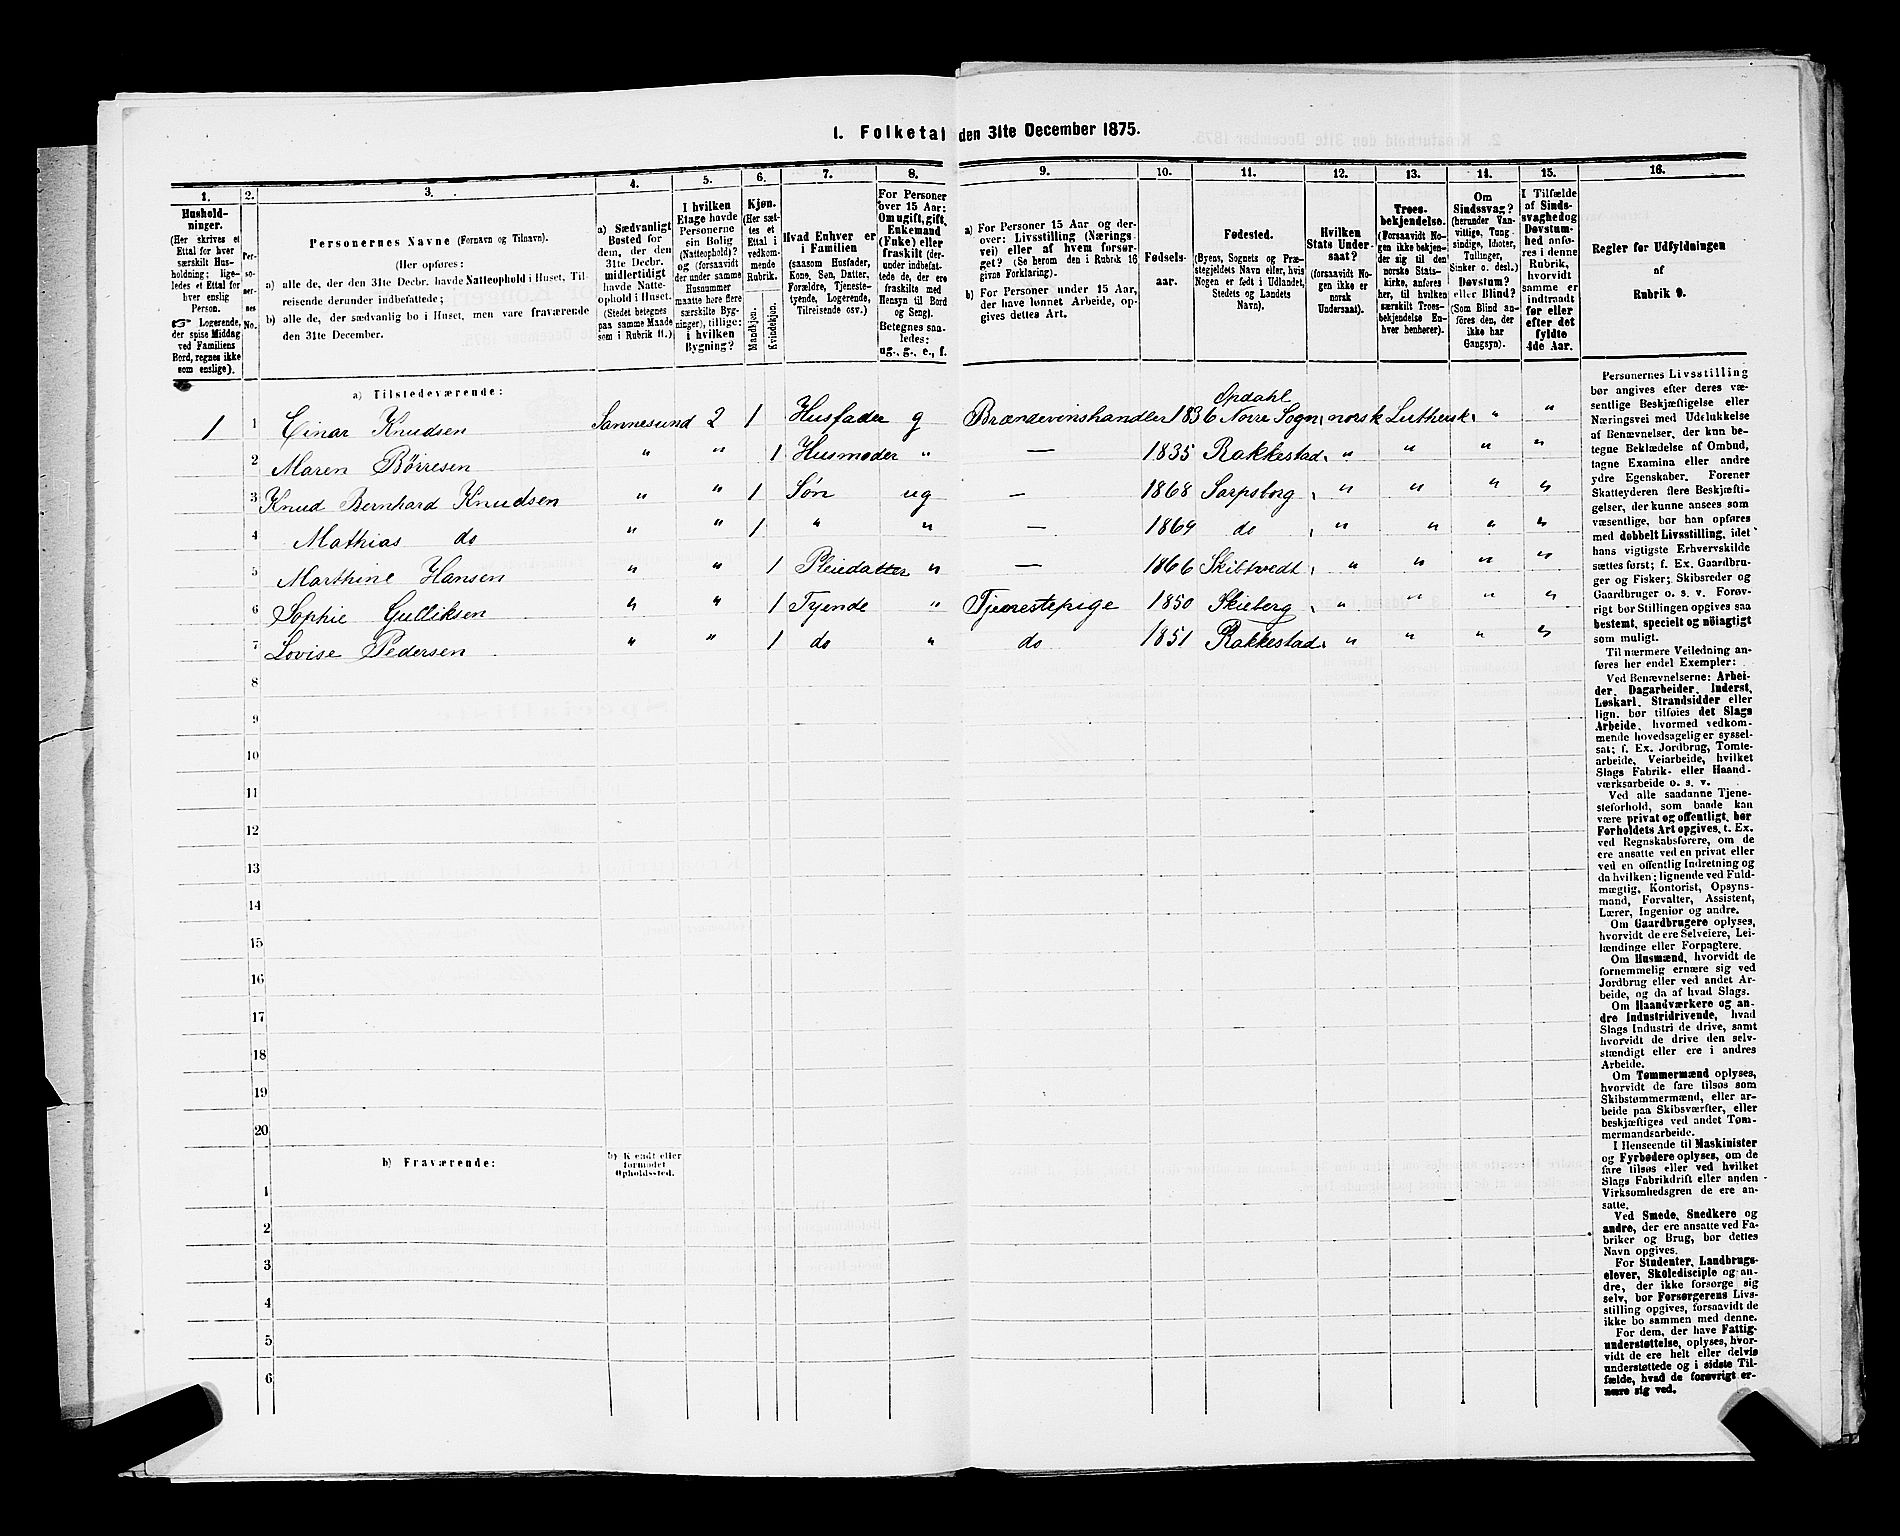 I. Folketal den 31te December 1875.
1. 2. 3. 4. 5. 6. 7. 8. 9. 10. 11. 12. 13. 14. 15. 16.
Hushold-
ninger.
(Her skrives et
Ettal for hver
særskilt Hus-
holdning; lige-
ledes et Ettal for
hver enslig
Person.
☞ Logerende,
der spise Middag
ved Familiens
Bord, regnes ikke
som enslige).
Per-
so-
ner-
nes
No.
Personernes Navne (Fornavn og Tilnavn).
(Her opføres:
a) alle de, der den 31te Decbr. havde Natteophold i Huset, Til-
reisende derunder indbefattede;
b) alle de, der sædvanlig bo i Huset, men vare fraværende
den 31te December.
a) Sædvanligt
Bosted for
dem, der den
31te Decbr.
midlertidigt
havde Natte-
ophold i Huset.
(Stedet betegnes
paa samme Maade
som i Rubrik 11.)
I hvilken
Etage havde
Personerne
sin Bolig
(Natteophold)?
og (forsaavidt
der under samme
Husnummer
maatte høre flere
særskilte Byg-
ninger), tillige:
i hvilken
Bygning?
Kjøn.
(Her sæt-
tes et
Ettal i
vedkom-
mende
Rubrik.
Mandkjøn.
Kvindekjøn.
Hvad Enhver er
i Familien
(saasom Husfader,
Kone, Søn, Datter,
Forældre, Tjeneste-
tyende, Logerende,
Tilreisende osv.)
For Personer
over 15 Aar:
Om ugift, gift,
Enkemand
(Enke) eller
fraskilt (der-
under indbefat-
tede de, der ere
fraskilte med
Hensyn til Bord
og Seng).
Betegnes saa-
ledes:
ug., g., e., f.
a) For Personer 15 Aar og der-
over: Livsstilling (Nærings
vei) eller af hvem forsør-
get? (Se herom den i Rubrik 16
givne Forklaring).
b) For Personer under 15 Aar,
der have lønnet Arbeide, op-
gives dettes Art.
Fødsels-
aar.
Fødested.
(Byens, Sognets og Præ-
stegjeldets Navn eller, hvis
Nogen er født i Udlandet,
Stedets og Landets
Navn).
Hvilken
Stats Under-
saat?
(forsaavidt No-
gen ikke er
norsk
Undersaat).
Troes-
bekjendelse.
(Forsaavidt No-
gen ikke bekjen-
der sig til den
norske Stats-
kirke, anføres
her, til hvilken
særskilt Troes-
bekjendelse En-
hver henhører).
Om
Sindssvag?
(herunder Van-
vittige, Tung-
sindige, Idioter,
Tullinger,
Sinker o. desl.)
Døvstum?
eller Blind?
(Som Blind an-
føres den, der
ikke har
Gangsyn).
I Tilfælde
af Sinds-
svaghed og
Døvstum-
hed anfø-
res i denne
Rubrik,
hvorvidt
samme er
indtraadt
før eller
efter det
fyldte
4de Aar.
Regler for Udfyldningen
af
Rubrik 9.
a) Tilstedeværende:
1 1 Einar Knudsen Sannesund 2 1 Husfader g Brændevinshandler 1836 Opdahl Norre Sogn norsk Luthersk " "
2 Maren Börresen " " 1 Husmoder " — 1835 Rakkestad " " " "
3 Knud Bernhard Knudsen " " 1 Søn ug — 1868 Sarpsborg " " " "
4 Mathias do " " 1 " " — 1869 do " " " "
5 Marthine Hansen " " 1 Pleiedatter " — 1866 Skibtvedt " " " "
6 Sophie Gulliksen " " 1 Tyende " Tjenestepige 1850 Skieberg " " " "
7 Lovise Pedersen " " 1 do " do 1851 Rakkestad " " " "
8
9
10
11
12
13
14
15
16
17
18
19
20
b) Fraværende:
b) Kjendt eller
formodet
Opholdssted.
1
2
3
4
5
6
Personernes Livsstilling
bør angives efter deres væ-
sentlige Beskjæftigelse eller
Næringsvei med Udelukkelse
af Benævnelser, der kun be-
tegne Beklædelse af Ombud,
tagne Examina eller andre
ydre Egenskaber. Forener
Skatteyderen flere Beskjæfti-
gelser, der kunne ansees som
væsentlige, bør han opføres
med dobbelt Livsstilling, idet
hans vigtigste Erhvervskilde
sættes først; f. Ex. Gaardbru-
ger og Fisker; Skibsreder og
Gaardbruger o. s. v. Forøv-
rigt bør Stillingen opgives saa
bestemt, specielt og nöiagtigt
som muligt.
Til nærmere Veiledning an-
føres her endel Exempler:
Ved Benævnelserne: Arbei-
der, Dagarbeider, Inderst,
Løskarl, Strandsidder eller
lign. bør tilføies det Slags
Arbeide, hvormed vedkom-
mende hovedsagelig er syssel-
sat; f. Ex. Jordbrug, Tomte-
arbeide, Veiarbeide, hvilket
Slags Fabrik- eller Haand-
værksarbeide o. s. v.
Ved alle saadanne Tjene-
steforhold, som baade kan
være privat og offentligt, bør
Forholdets Art opgives, t. Ex.
ved Regnskabsførere, om de
ere ansatte ved en privat eller
ved en offentlig Indretning og
da hvilken; lignende ved Fuld-
mægtig, Kontorist, Opsyns-
mand, Forvalter, Assistent,
Lærer, Ingeniør og andre.
Om Gaardbrugere oplyses,
hvorvidt de ere Selveiere, Lei-
lændinge eller Forpagtere.
Om Husmænd, hvorvidt de
fornemmelig ernære sig ved
Jordbrug eller ved andet Ar-
beide, og da af hvad Slags.
Om Haandværkere og an-
dre Industridrivende, hvad
Slags Industri de drive, samt
hvorvidt de drive den selv-
stændigt eller ere i andres
Arbeide.
Om Tømmermænd oplyses,
hvorvidt de fare tilsøs som
Skibstømmermænd, eller ar-
beide paa Skibsværfter, eller
beskjæftiges ved andet Tøm-
mermandsarbeide.
I Henseende til Maskinister
og Fyrbødere oplyses, om de
fare tilsøs eller ved hvilket
Slags Fabrikdrift eller anden
Virksomhedsgren de ere an-
satte.
Ved Smede, Snedkere og
andre, der ere ansatte ved Fa-
briker og Brug, bør dettes
Navn opgives.
For Studenter, Landbrugs-
elever, Skoledisciple og an-
dre, der ikke forsørge sig
selv, bør Forsørgerens Livs-
stilling opgives, forsaavidt de
ikke bo sammen med denne.
For dem, der have Fattig-
understøttelse, oplyses, hvor-
vidt de ere helt eller delvis
understøttede og i sidste Til-
fælde, hvad de forøvrigt er-
nære sig ved.